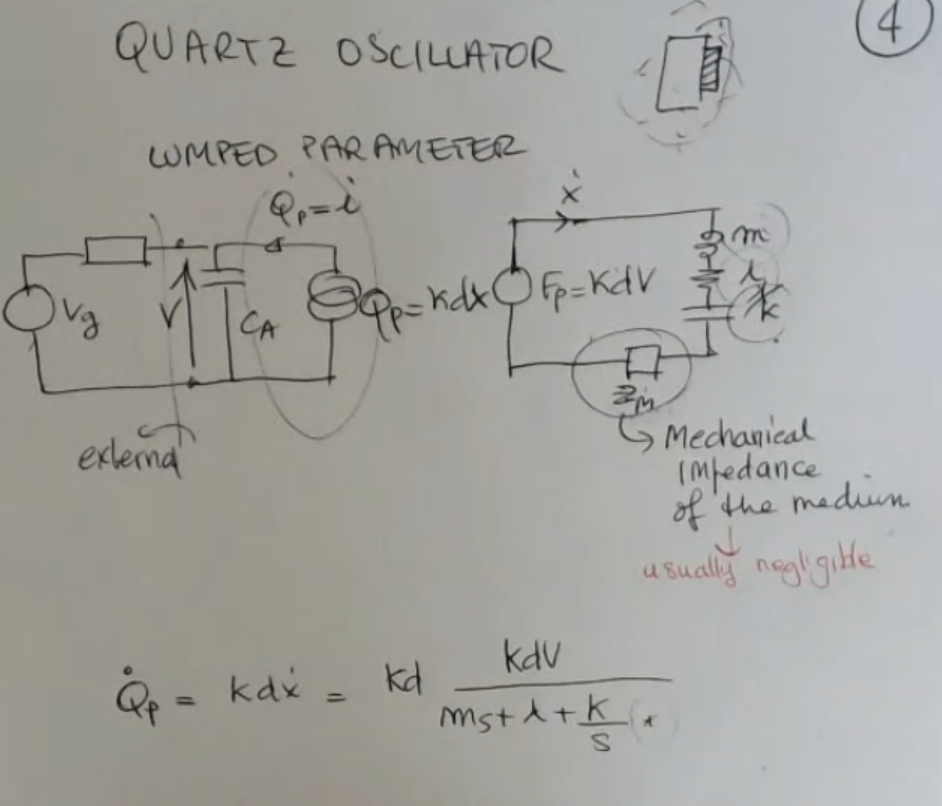 4
QUARTZ OSCILLATOR
LUMPED PARAMETER
Q̇p = i
ẋ
Vg
V
CA
Qp = kdx
Fp = kdV
m
λ
k
Zm
external
Mechanical
Impedance
of the medium
usually negligible
Q̇p = kdẋ = kd kdV / (ms + λ + k/s)